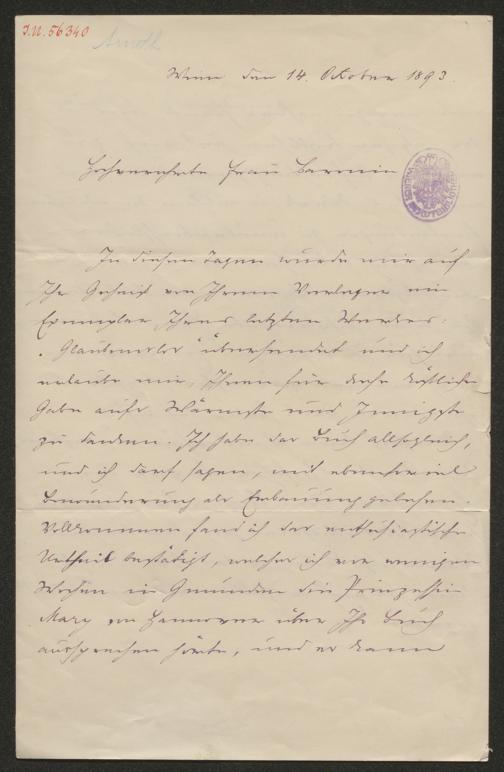 J.N. 56340
Arneth
Wien den 14. Oktober 1893.
Hochverehrte Frau Baronin
In diesen Tagen wurde mir auf
Ihr Geheiß von Ihrem Verleger ein
Exemplar Ihres letzten Werkes:
"Glaubenslos" übersendet und ich
erlaube mir, Ihnen für diese köstliche
Gabe aufs Wärmste und Innigste
zu danken. Ich habe das Buch allsogleich,
und ich darf sagen, mit ebensoviel
Bewunderung als Erbauung gelesen.
Vollkommen fand ich das enthusiastische
Urtheil bestätigt, welches ich vor wenigen
Wochen in Gmunden die Prinzessin
Mary von Hannover über Ihr Buch
aussprechen hörte, und es kann